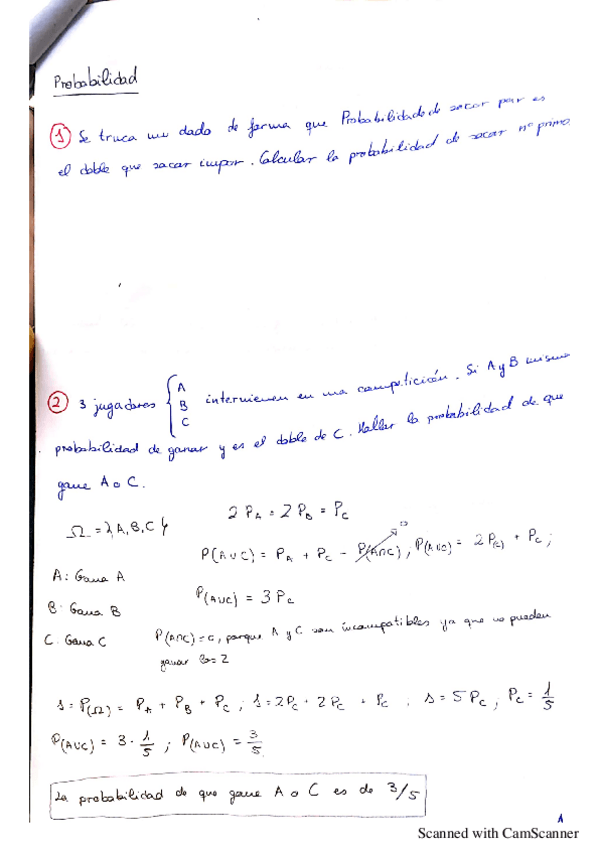 Probabilidad
① Se truca un dado de forma que Probabilidad de sacar par es
el doble que sacar impar. Calcular la probabilidad de sacar nº primo.
② 3 jugadores { A B C intervienen en una competición. Si A y B misma
probabilidad de ganar y es el doble de C. Hallar la probabilidad de que
gane A o C.
Ω = {A, B, C}
2 P_A = 2 P_B = P_C
P(A∪C) = P_A + P_C - P(A∩C), P(A∪C) = 2 P(C) + P_C ;
A: Gana A
P(A∪C) = 3 P_C
B: Gana B
C: Gana C
P(A∩C) = 0, porque A y C son incompatibles ya que no pueden
ganar los 2
1 = P(Ω) = P_A + P_B + P_C ; 1 = 2P_C + 2P_C + P_C ; 1 = 5 P_C ; P_C = 1/5
P(A∪C) = 3 · 1/5 ; P(A∪C) = 3/5
La probabilidad de que gane A o C es de 3/5
1
Scanned with CamScanner